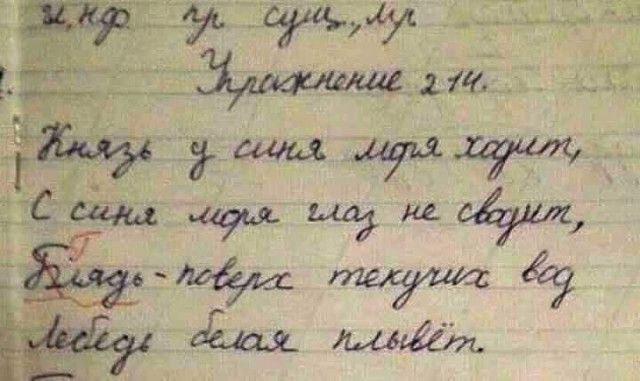 инф пр сущ., мр
Упражнение 214.
Князь у синя моря ходит,
С синя моря глаз не сводит,
Г
Блядь - поверх текучих вод
Лебедь белая плывёт.